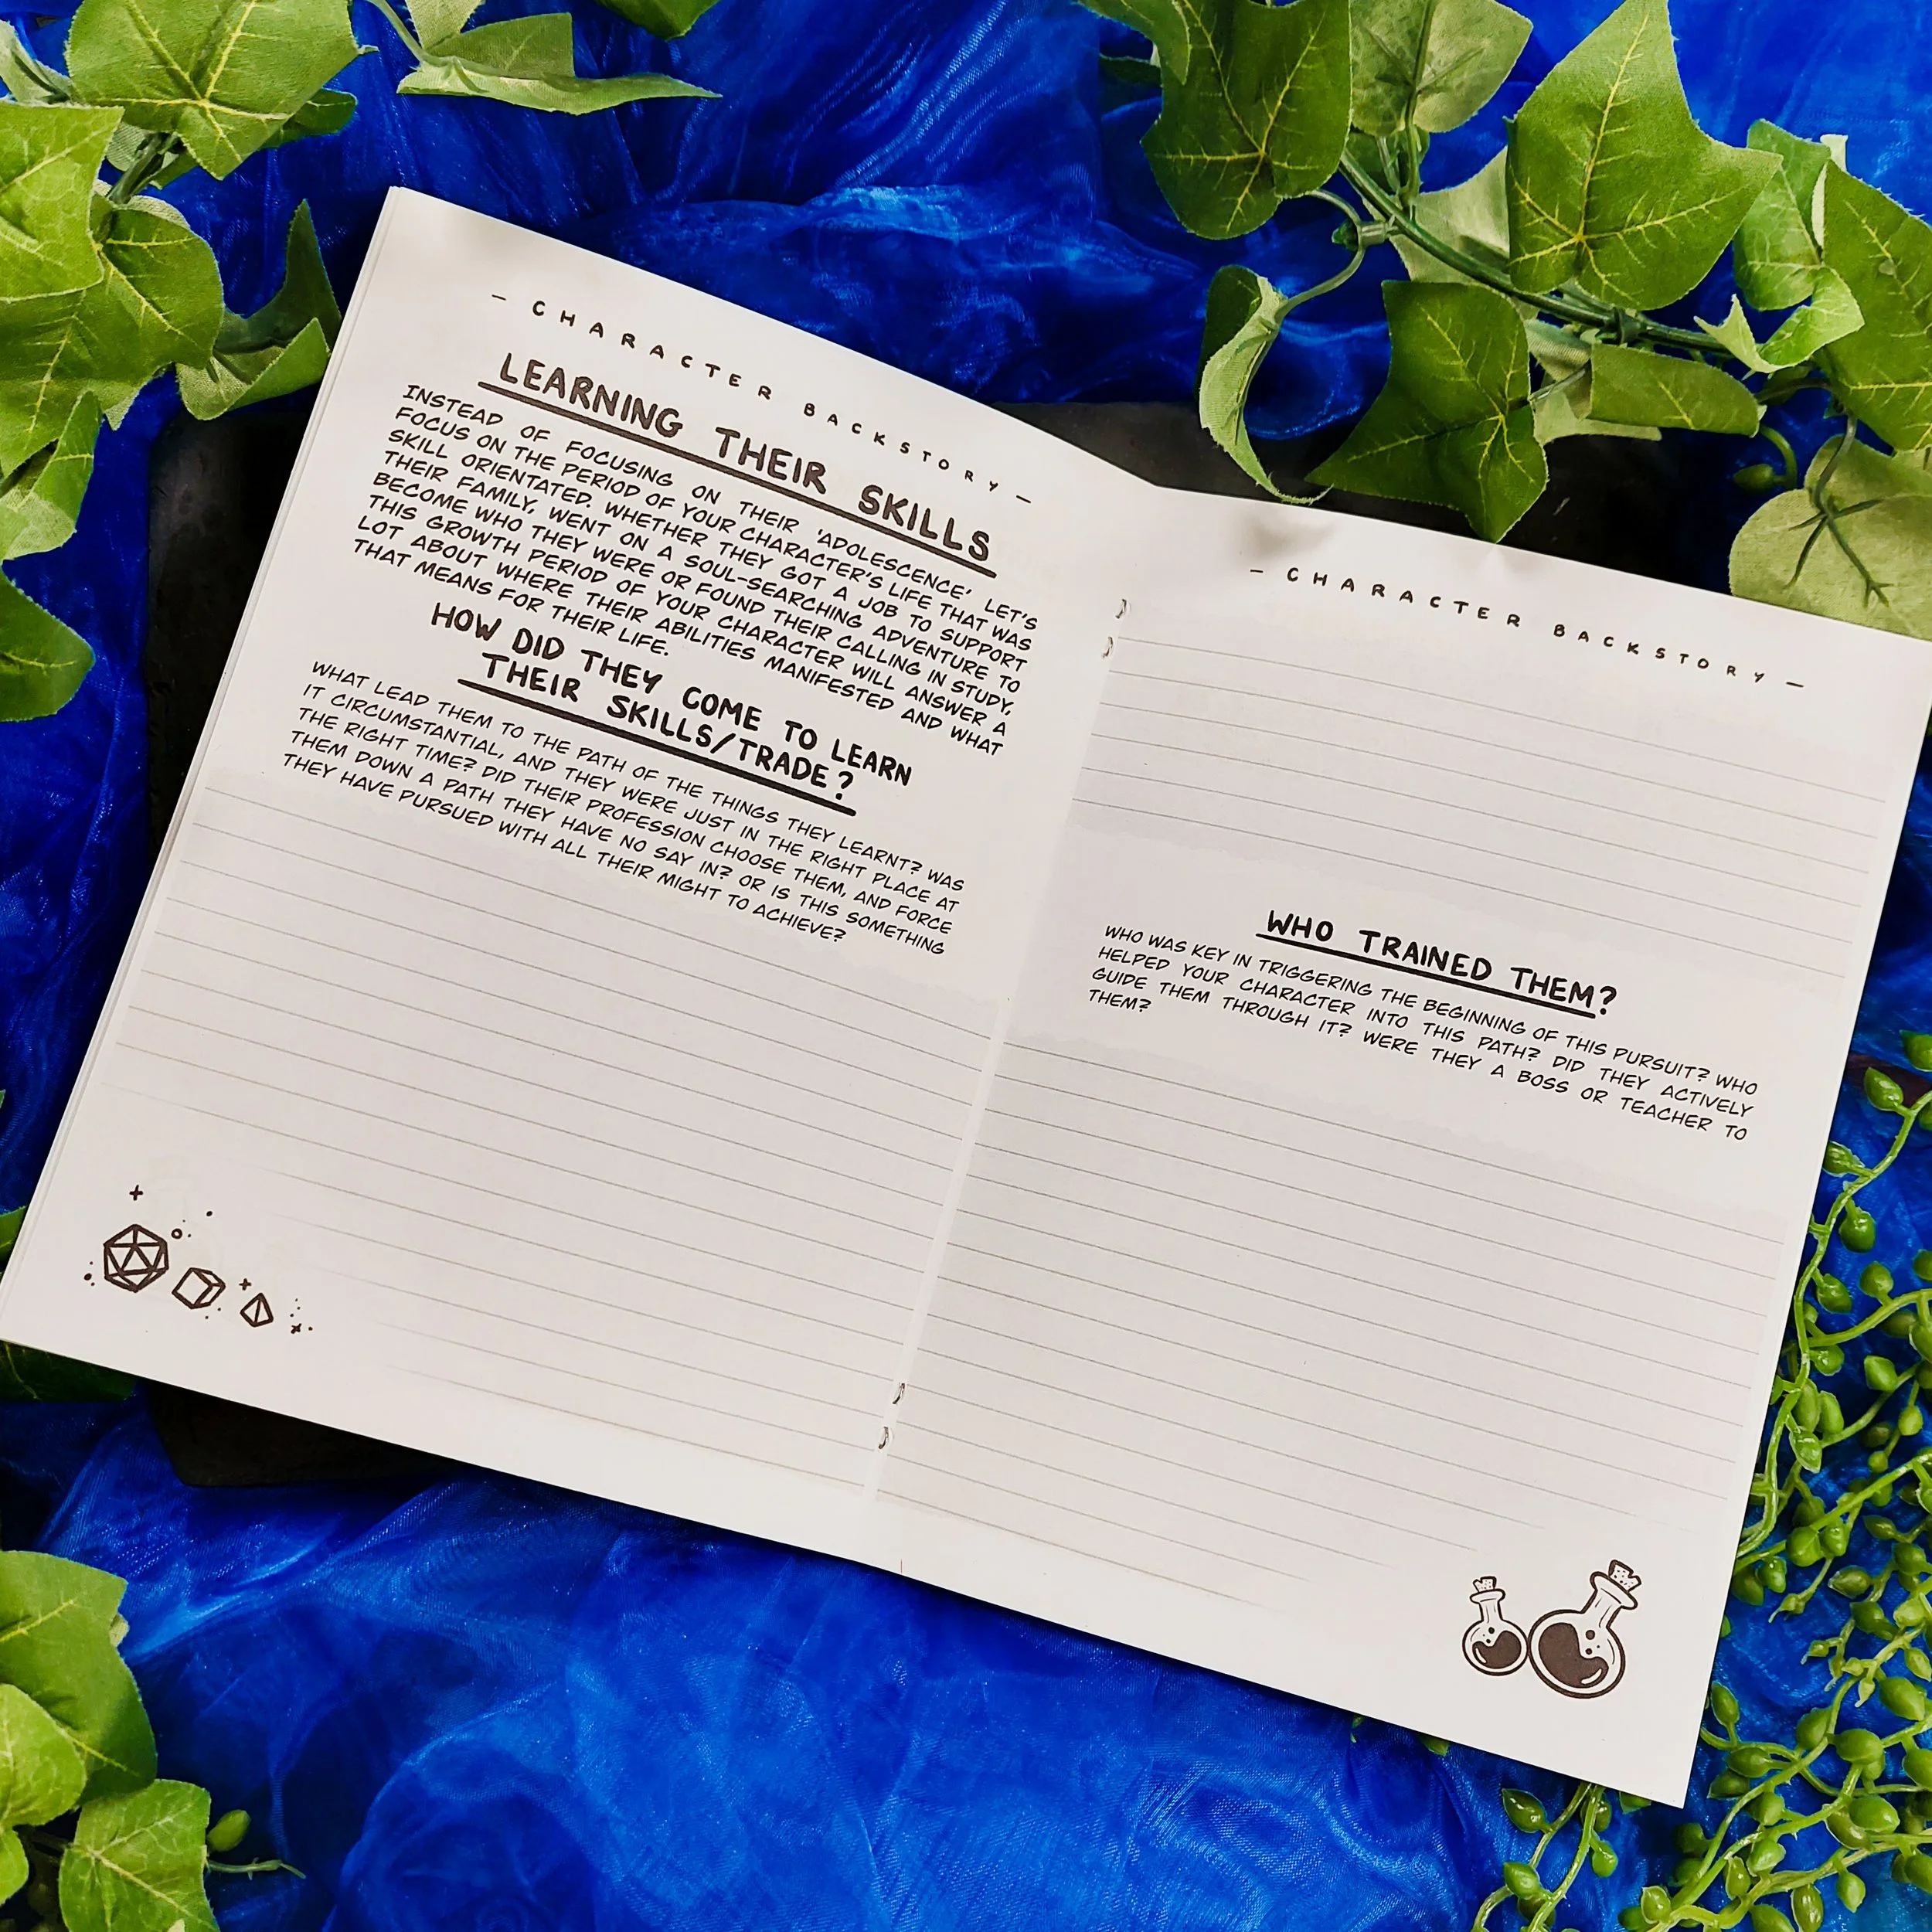 - CHARACTER BACKSTORY -
LEARNING THEIR SKILLS
INSTEAD OF FOCUSING ON THEIR 'ADOLESCENCE' LET'S
FOCUS ON THE PERIOD OF YOUR CHARACTER'S LIFE THAT WAS
SKILL ORIENTATED. WHETHER THEY GOT A JOB TO SUPPORT
THEIR FAMILY, WENT ON A SOUL-SEARCHING ADVENTURE TO
BECOME WHO THEY WERE OR FOUND THEIR CALLING IN STUDY,
THIS GROWTH PERIOD OF YOUR CHARACTER WILL ANSWER A
LOT ABOUT WHERE THEIR ABILITIES MANIFESTED AND WHAT
THAT MEANS FOR THEIR LIFE.
HOW DID THEY COME TO LEARN
THEIR SKILLS/TRADE?
WHAT LEAD THEM TO THE PATH OF THE THINGS THEY LEARNT? WAS
IT CIRCUMSTANTIAL, AND THEY WERE JUST IN THE RIGHT PLACE AT
THE RIGHT TIME? DID THEIR PROFESSION CHOOSE THEM, AND FORCE
THEM DOWN A PATH THEY HAVE NO SAY IN? OR IS THIS SOMETHING
THEY HAVE PURSUED WITH ALL THEIR MIGHT TO ACHIEVE?
- CHARACTER BACKSTORY -
WHO TRAINED THEM?
WHO WAS KEY IN TRIGGERING THE BEGINNING OF THIS PURSUIT? WHO
HELPED YOUR CHARACTER INTO THIS PATH? DID THEY ACTIVELY
GUIDE THEM THROUGH IT? WERE THEY A BOSS OR TEACHER TO
THEM?